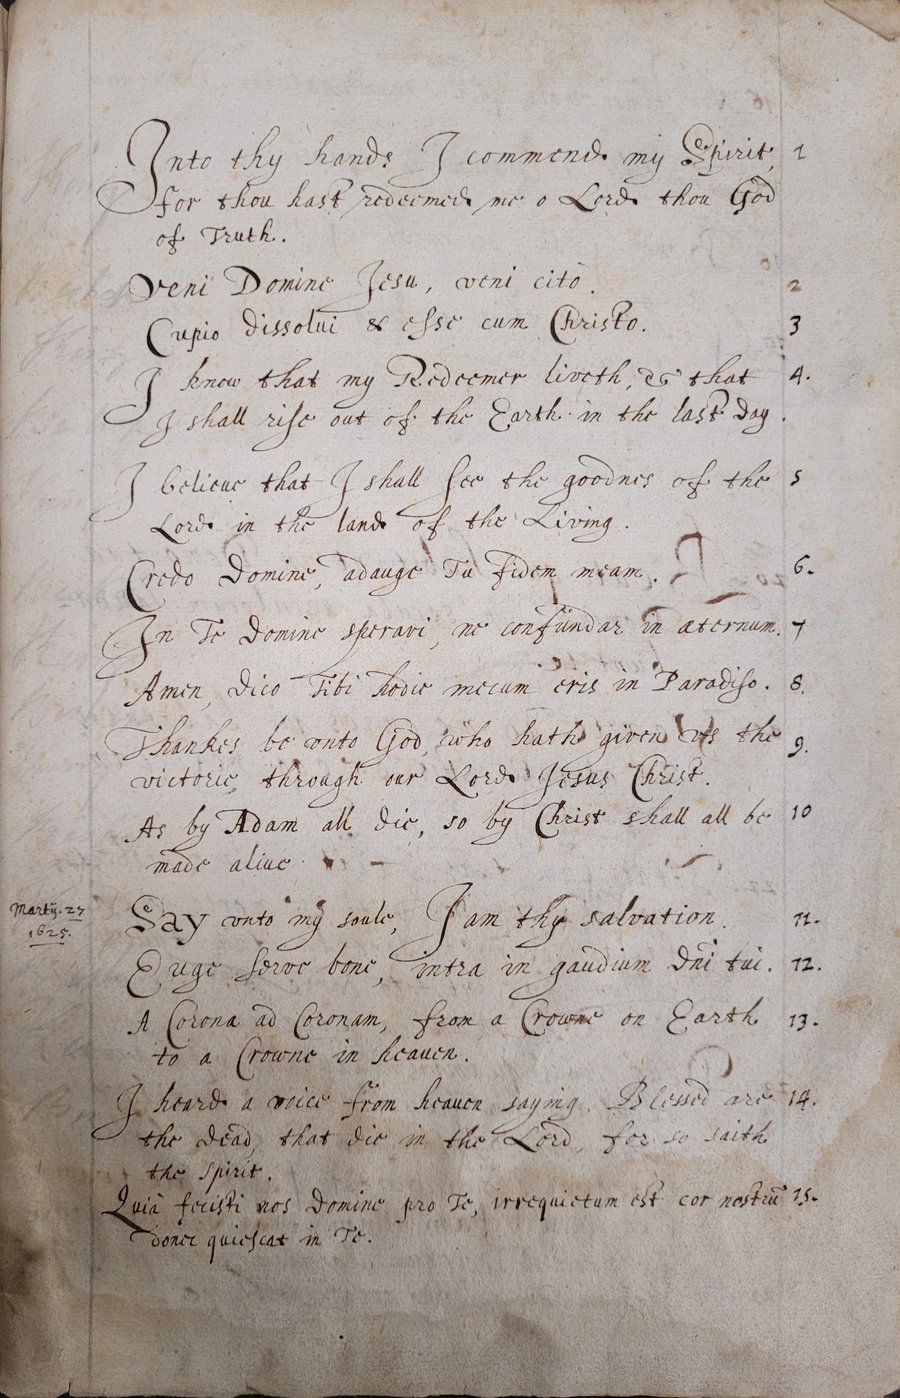 Into thy hands I commend my Spirit, 1
for thou hast redeemed me o Lord thou God
of Truth.
Veni Domine Jesu, veni citò. 2
Cupio dissolui & esse cum Christo. 3
I know that my Redeemer liveth, & that 4.
I shall rise out of the Earth in the last day.
I beleeue that I shall see the goodnes of the 5
Lord in the land of the Living.
Credo Domine, adauge Tu fidem meam. 6.
In Te Domine speravi, ne confundar in æternum. 7
Amen, dico Tibi hodie mecum eris in Paradiso. 8.
Thankes be vnto God, who hath given vs the 9.
victorie, through our Lord Jesus Christ.
As by Adam all die, so by Christ shall all be 10
made aliue
Martij. 27 Say vnto my soule, I am thy salvation. 11.
1625.
Euge serve bone, intra in gaudium Dn̄i tui. 12.
A Corona ad Coronam, from a Crowne on Earth 13.
to a Crowne in heaven.
I heard a voice from heaven saying, Blessed are 14.
the dead, that die in the Lord, for so saith
the spirit.
Quià fecisti nos Domine pro Te, irrequietum est cor nostrū 15.
donec quiescat in Te.